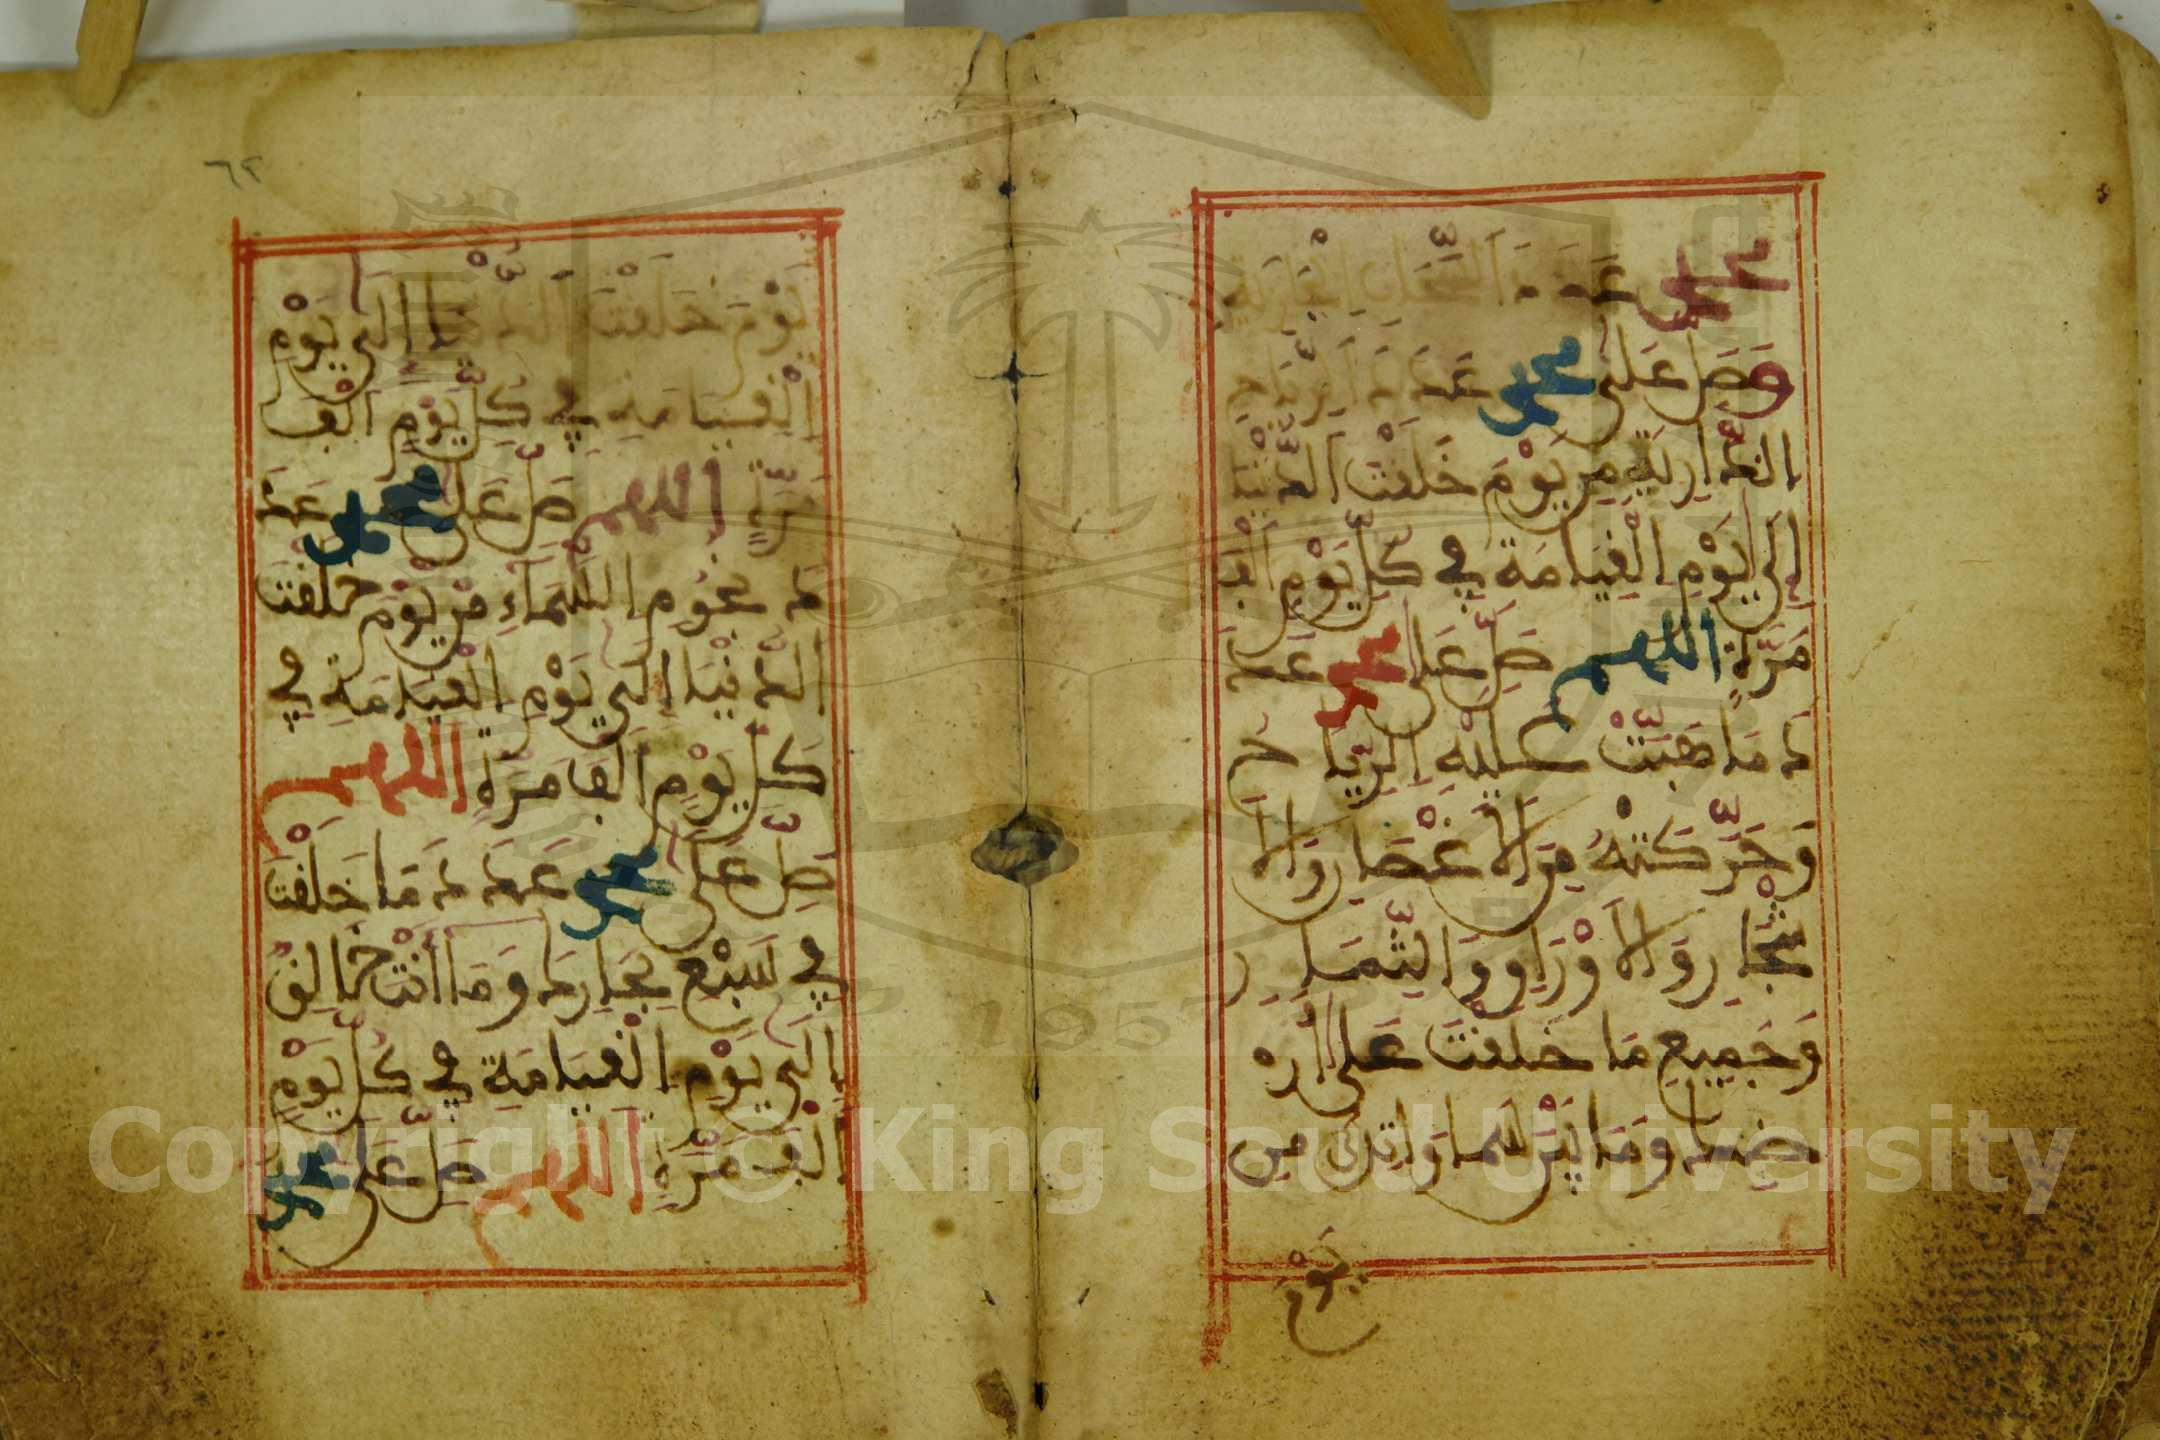 محمد عدد السحاب الجارية
وصل على محمد عدد الرياح
الذارية من يوم خلقت الدنيا
إلى يوم القيامة في كل يوم ألف
مرة اللهم صل على محمد عد
د ما هبت عليه الرياح
وحركته من الأغصان والأ
شجار والأوراق والثمار
وجميع ما خلقت على أر
ضك وما بين سماواتك من
يوم
٦٢
يوم خلقت الدنيا إلى يوم
القيامة في كل يوم ألف
مرة اللهم صل على محمد عد
د نجوم السماء من يوم خلقت
الدنيا إلى يوم القيامة في
كل يوم ألف مرة اللهم
صل على محمد عدد ما خلقت
في سبع بحارك وما أنت خالق
إلى يوم القيامة في كل يوم
ألف مرة اللهم صل على محمد
Copyright © King Saud University
1957